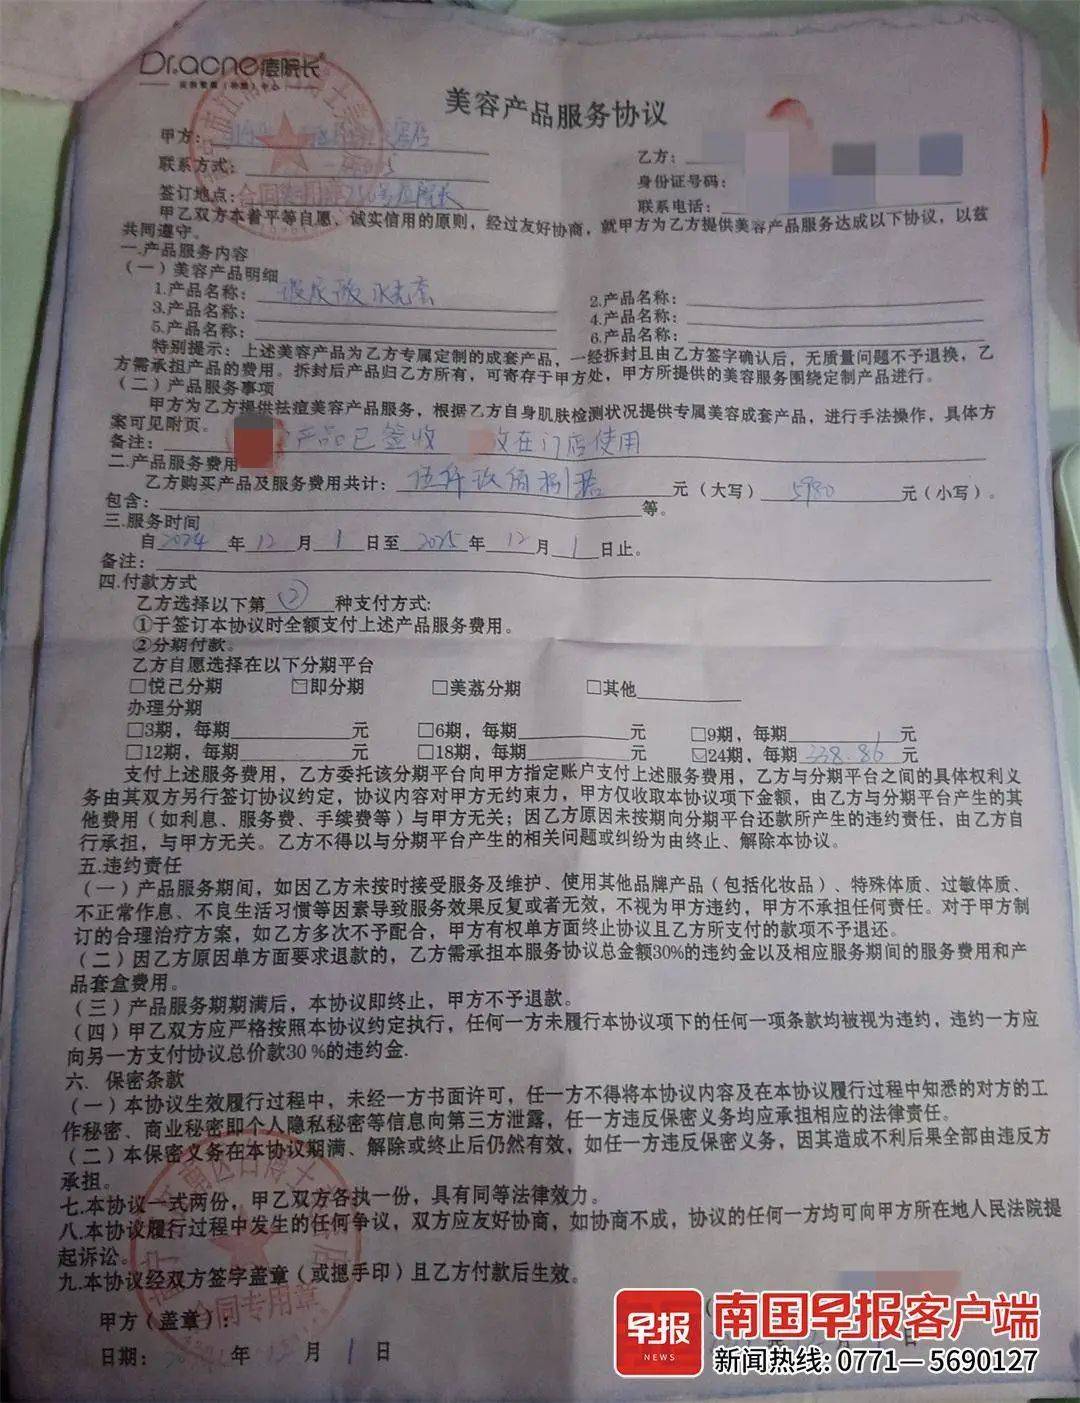 Dr.acne痘院长
美容产品服务协议
甲方:
乙方:
联系方式:
身份证号码:
签订地点:
联系电话:
合同专用章
甲乙双方本着平等自愿、诚实信用的原则，经过友好协商，就甲方为乙方提供美容产品服务达成以下协议，以兹
共同遵守。
一.产品服务内容
(一)美容产品明细
1.产品名称:
2.产品名称:
3.产品名称:
4.产品名称:
5.产品名称:
6.产品名称:
特别提示：上述美容产品为乙方专属定制的成套产品，一经拆封且由乙方签字确认后，无质量问题不予退换，乙
方需承担产品的费用。拆封后产品归乙方所有，可寄存于甲方处，甲方所提供的美容服务围绕定制产品进行。
(二)产品服务事项
甲方为乙方提供祛痘美容产品服务，根据乙方自身肌肤检测状况提供专属美容成套产品，进行手法操作，具体方
案可见附页。
备注: 产品已签收 在门店使用
二.产品服务费用
乙方购买产品及服务费用共计: 伍仟玖佰捌拾 元(大写) 5980 元(小写)。
包含: 等。
三.服务时间
自2024年12月1日至2025年12月1日止。
备注:
四.付款方式
乙方选择以下第②种支付方式:
①于签订本协议时全额支付上述产品服务费用。
②分期付款。
乙方自愿选择在以下分期平台
□悦己分期 ☑即分期 □美荔分期 □其他
办理分期
□3期，每期 元 □6期，每期 元 □9期，每期 元
□12期，每期 元 □18期，每期 元 ☑24期，每期338.86元
支付上述服务费用，乙方委托该分期平台向甲方指定账户支付上述服务费用，乙方与分期平台之间的具体权利义
务由其双方另行签订协议约定，协议内容对甲方无约束力，甲方仅收取本协议项下金额，由乙方与分期平台产生的其
他费用（如利息、服务费、手续费等）与甲方无关；因乙方原因未按期向分期平台还款所产生的违约责任，由乙方自
行承担，与甲方无关。乙方不得以与分期平台产生的相关问题或纠纷为由终止、解除本协议。
五.违约责任
(一)产品服务期间，如因乙方未按时接受服务及维护、使用其他品牌产品（包括化妆品）、特殊体质、过敏体质、
不正常作息、不良生活习惯等因素导致服务效果反复或者无效，不视为甲方违约，甲方不承担任何责任。对于甲方制
订的合理治疗方案，如乙方多次不予配合，甲方有权单方面终止协议且乙方所支付的款项不予退还。
(二)因乙方原因单方面要求退款的，乙方需承担本服务协议总金额30%的违约金以及相应服务期间的服务费用和产
品套盒费用。
(三)产品服务期期满后，本协议即终止，甲方不予退款。
(四)甲乙双方应严格按照本协议约定执行，任何一方未履行本协议项下的任何一项条款均被视为违约，违约一方应
向另一方支付协议总价款30 %的违约金.
六. 保密条款
(一)本协议生效履行过程中，未经一方书面许可，任一方不得将本协议内容及在本协议履行过程中知悉的对方的工
作秘密、商业秘密即个人隐私秘密等信息向第三方泄露，任一方违反保密义务均应承担相应的法律责任。
(二)本保密义务在本协议期满、解除或终止后仍然有效，如任一方违反保密义务，因其造成不利后果全部由违反方
承担。
七.本协议一式两份，甲乙双方各执一份，具有同等法律效力。
八.本协议履行过程中发生的任何争议，双方应友好协商，如协商不成，协议的任何一方均可向甲方所在地人民法院提
起诉讼。
九.本协议经双方签字盖章（或摁手印）且乙方付款后生效。
甲方(盖章):
合同专用章
日期: 2024年12月1日
早报
NEWS
南国早报客户端
新闻热线: 0771—5690127